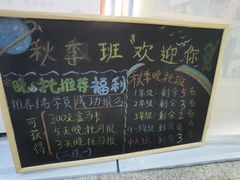 秋季班 欢迎你
晚托推荐福利
推荐1名学员成功报名
可获得
300元金卡
5天晚托月报
3天晚托日报
(三选一)
秋季晚托班
1年级: 剩余5名
2年级: 剩余3名
3年级: 剩余2名
4-5年级: 剩余
中大班: 剩余3名